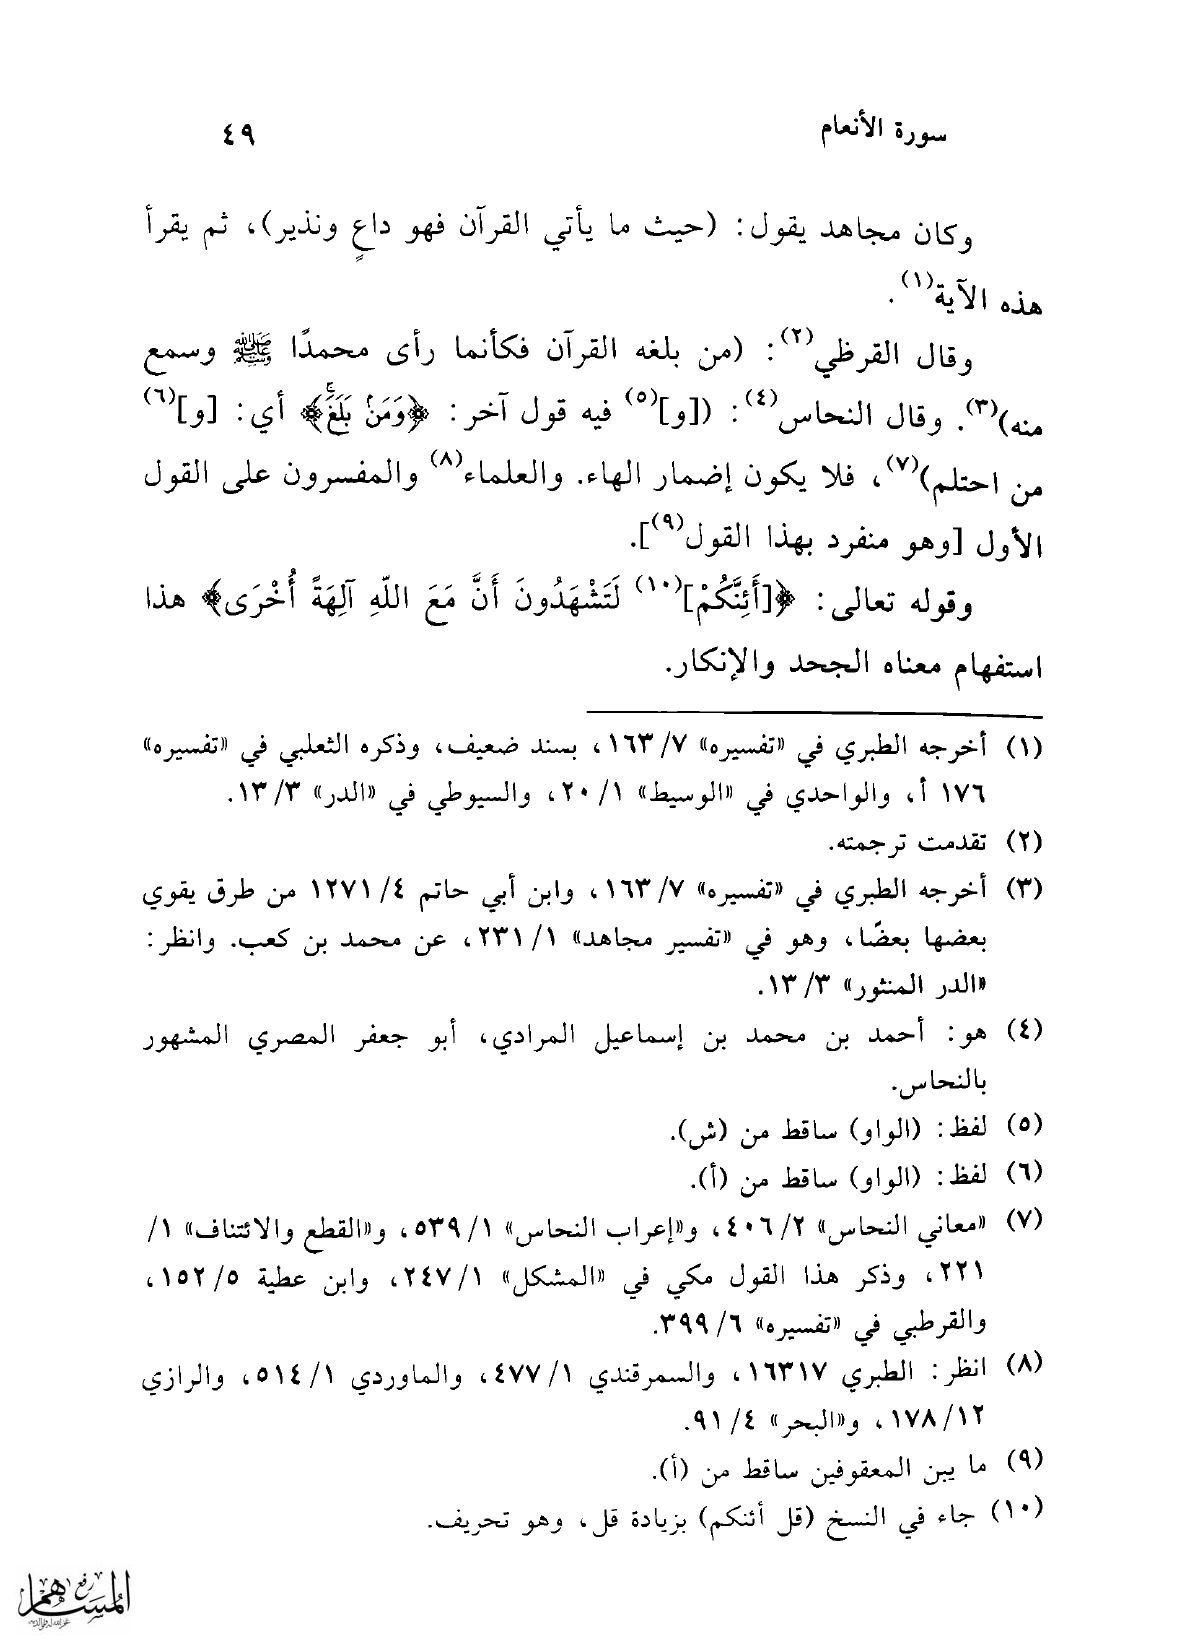 سورة الأنعام
٤٩
وكان مجاهد يقول: (حيث ما يأتي القرآن فهو داعٍ ونذير)، ثم يقرأ
هذه الآية(١).
وقال القرظي(٢): (من بلغه القرآن فكأنما رأى محمدًا ﷺ وسمع
منه)(٣). وقال النحاس(٤): ([و](٥) فيه قول آخر: ﴿وَمَنۢ بَلَغَۚ﴾ أي: [و](٦)
من احتلم)(٧)، فلا يكون إضمار الهاء. والعلماء(٨) والمفسرون على القول
الأول [وهو منفرد بهذا القول(٩)].
وقوله تعالى: ﴿[أَئِنَّكُمْ](١٠) لَتَشْهَدُونَ أَنَّ مَعَ اللّهِ آلِهَةً أُخْرَى﴾ هذا
استفهام معناه الجحد والإنكار.
(١) أخرجه الطبري في «تفسيره» ٧/ ١٦٣، بسند ضعيف، وذكره الثعلبي في «تفسيره»
١٧٦ أ، والواحدي في «الوسيط» ١/ ٢٠، والسيوطي في «الدر» ٣/ ١٣.
(٢) تقدمت ترجمته.
(٣) أخرجه الطبري في «تفسيره» ٧/ ١٦٣، وابن أبي حاتم ٤/ ١٢٧١ من طرق يقوي
بعضها بعضًا، وهو في «تفسير مجاهد» ١/ ٢٣١، عن محمد بن كعب. وانظر:
«الدر المنثور» ٣/ ١٣.
(٤) هو: أحمد بن محمد بن إسماعيل المرادي، أبو جعفر المصري المشهور
بالنحاس.
(٥) لفظ: (الواو) ساقط من (ش).
(٦) لفظ: (الواو) ساقط من (أ).
(٧) «معاني النحاس» ٢/ ٤٠٦، و«إعراب النحاس» ١/ ٥٣٩، و«القطع والائتناف» ١/
٢٢١، وذكر هذا القول مكي في «المشكل» ١/ ٢٤٧، وابن عطية ٥/ ١٥٢،
والقرطبي في «تفسيره» ٦/ ٣٩٩.
(٨) انظر: الطبري ١٦٣١٧، والسمرقندي ١/ ٤٧٧، والماوردي ١/ ٥١٤، والرازي
١٢/ ١٧٨، و«البحر» ٤/ ٩١.
(٩) ما يبن المعقوفين ساقط من (أ).
(١٠) جاء في النسخ (قل أئنكم) بزيادة قل، وهو تحريف.